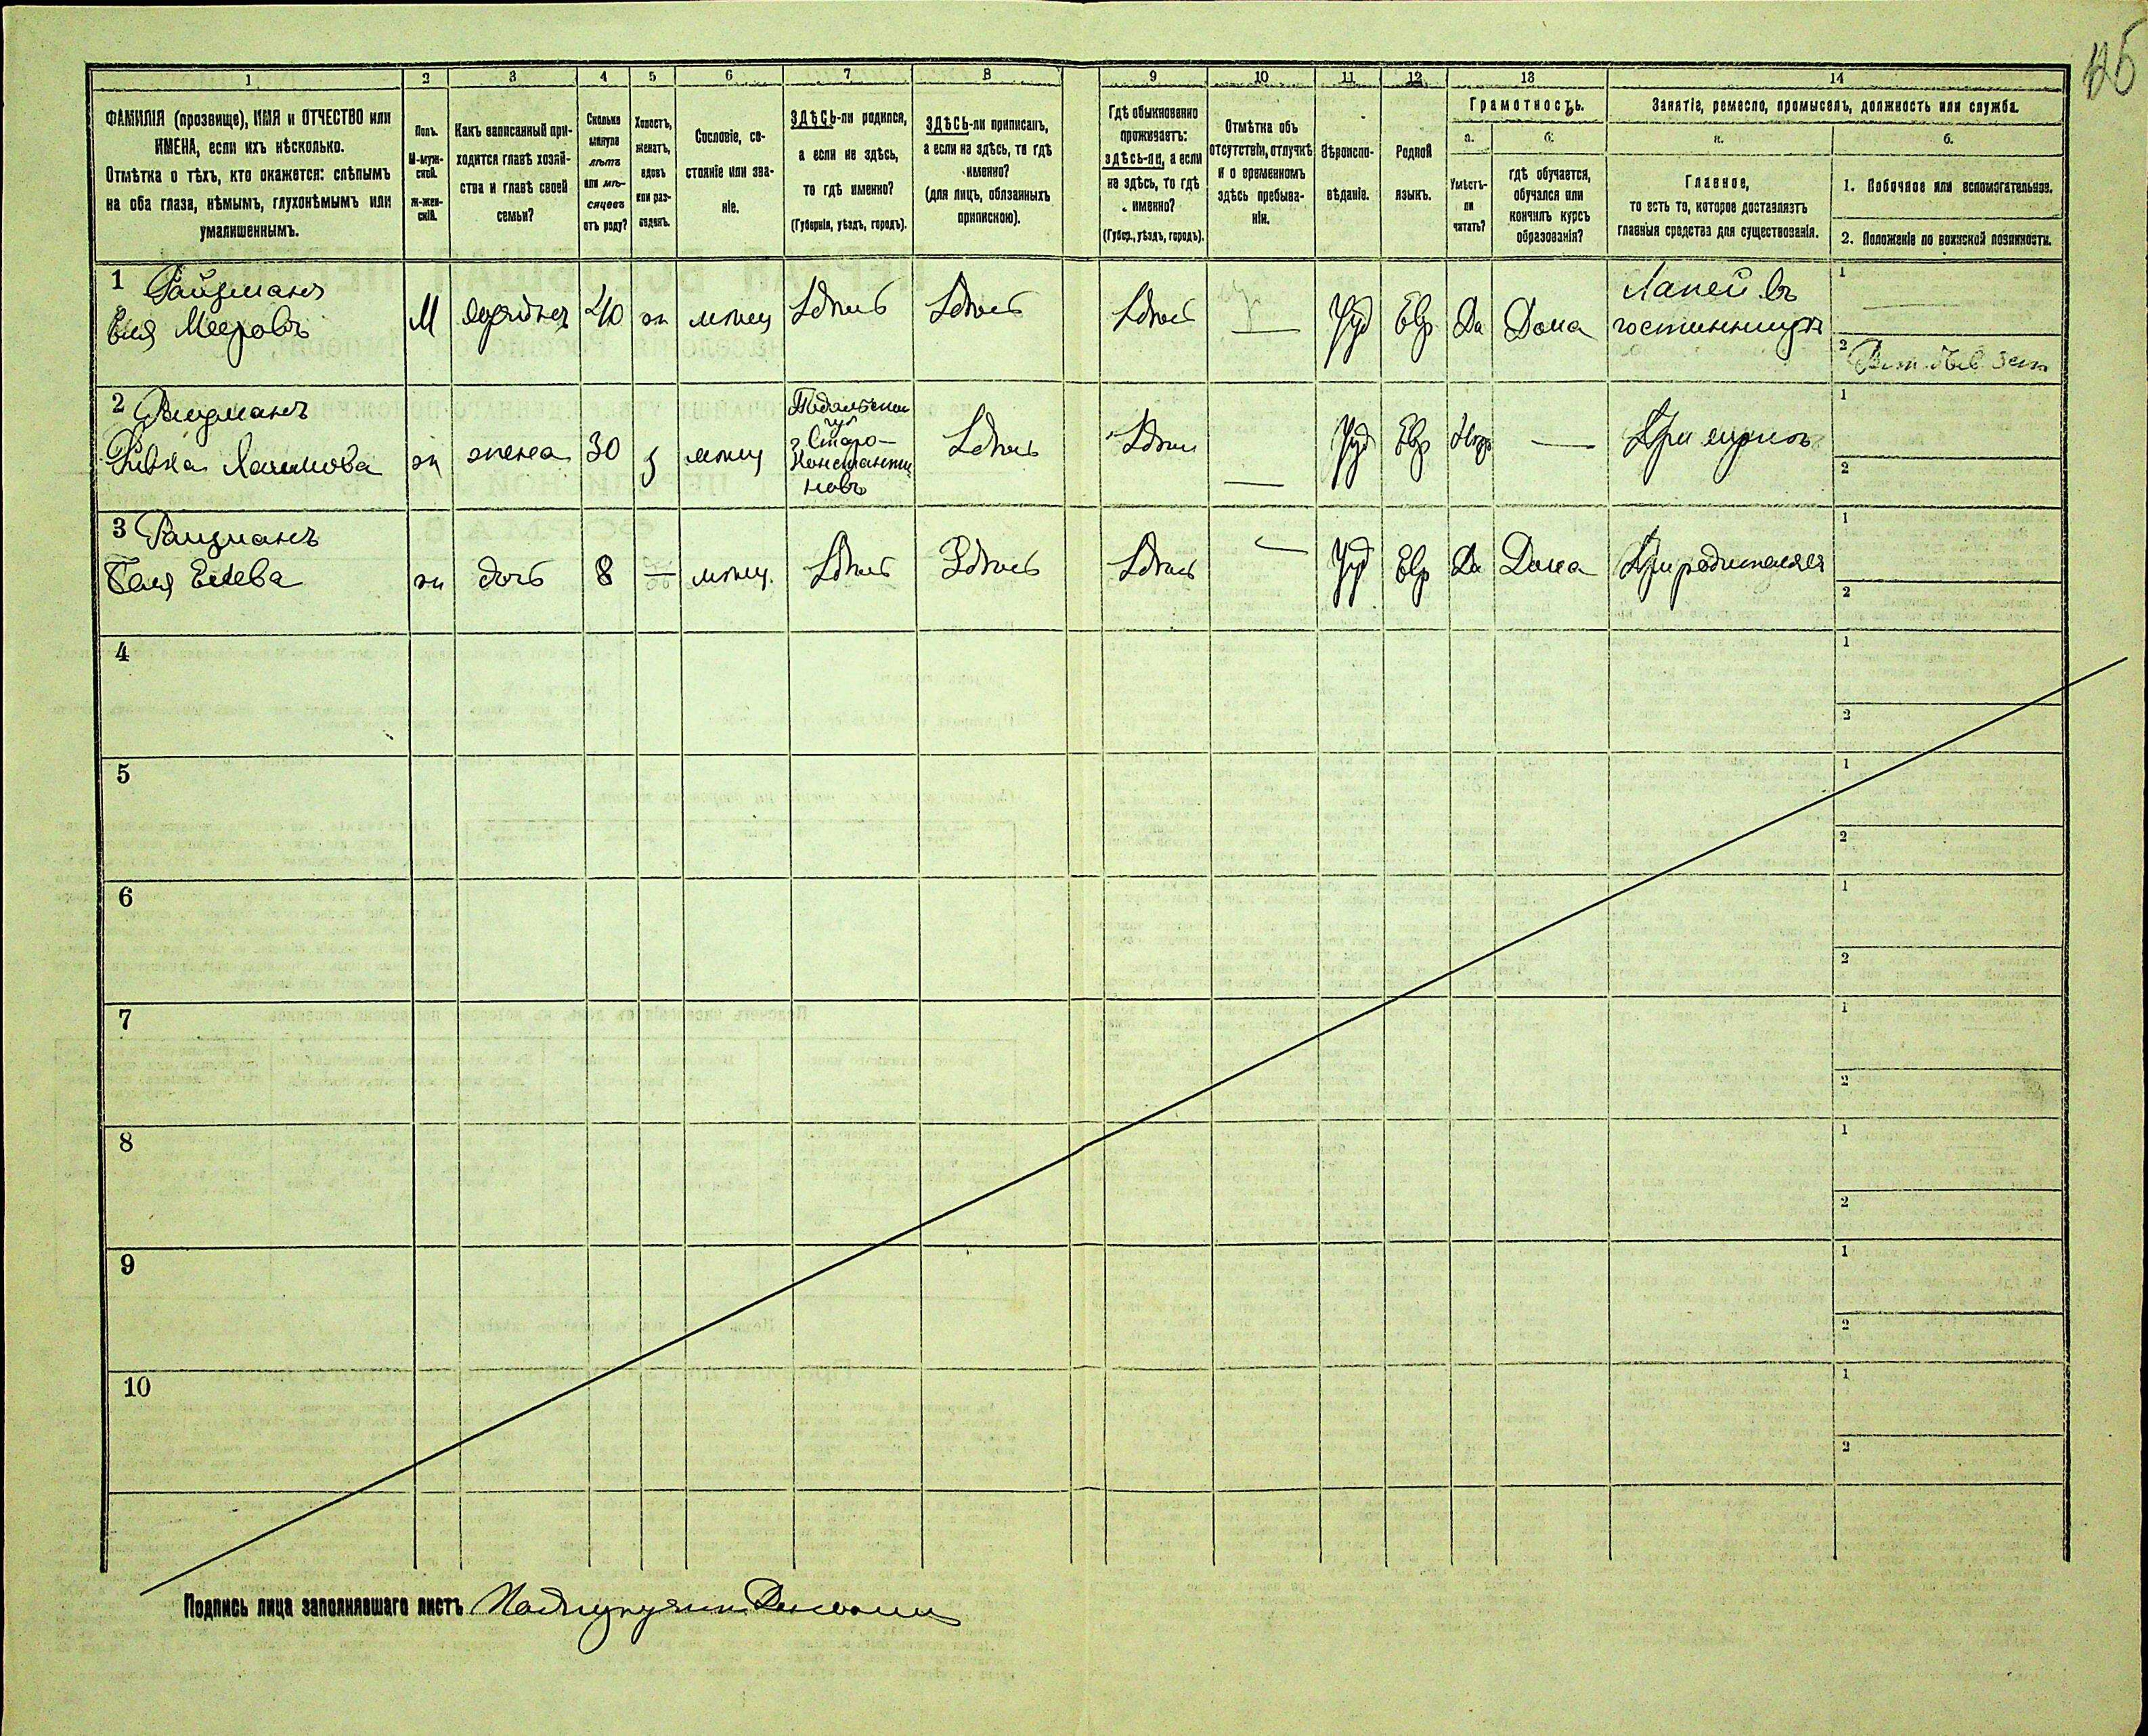 125
1 2 3 4 5 6 7 8 9 10 11 12 13 14
ФАМИЛІЯ (прозвище), ИМЯ и ОТЧЕСТВО или
ИМЕНА, если ихъ нѣсколько.
Отмѣтка о тѣхъ, кто окажется: слѣпымъ
на оба глаза, нѣмымъ, глухонѣмымъ или
умалишеннымъ.
Полъ.
М-муж-
ской.
Ж-жен-
скій.
Какъ записанный при-
ходится главѣ хозяй-
ства и главѣ своей
семьи?
Сколько
минуло
лѣтъ
или мѣ-
сяцевъ
отъ роду?
Холостъ,
женатъ,
вдовъ
или раз-
веденъ.
Сословіе, со-
стояніе или зва-
ніе.
ЗДѢСЬ-ли родился,
а если не здѣсь,
то гдѣ именно?
(Губернія, уѣздъ, городъ).
ЗДѢСЬ-ли приписанъ,
а если не здѣсь, то гдѣ
именно?
(для лицъ, обязанныхъ
припискою).
Гдѣ обыкновенно
проживаетъ:
здѣсь-ли, а если
не здѣсь, то гдѣ
именно?
(Губер., уѣздъ, городъ).
Отмѣтка объ
отсутствіи, отлучкѣ
и о временномъ
здѣсь пребыва-
ніи.
Вѣроиспо-
вѣданіе.
Родной
языкъ.
Грамотность.
а.
Умѣетъ-
ли
читать?
б.
гдѣ обучается,
обучался или
кончилъ курсъ
образованія?
Занятіе, ремесло, промыселъ, должность или служба.
а.
Главное,
то есть то, которое доставляетъ
главныя средства для существованія.
б.
1. Побочное или вспомогательное.
2. Положеніе по воинской повинности.
1 Райзманъ
Еля Мееровъ
М
40
ж
мѣщ
Здѣсь
Здѣсь
Здѣсь
Іуд
Евр
Да
Дома
Лакей въ
гостинницѣ
1
2
2 Райзманъ
Ривка Хаимова
ж
жена
30
з
мѣщ
Подольской
гу
г Старо-
Константи
новъ
Здѣсь
Здѣсь
Іуд
Евр
При мужѣ
1
2
3 Райзманъ
Елева
ж
дочь
8
мѣщ.
Здѣсь
Здѣсь
Здѣсь
Іуд
Евр
Да
Дома
При родителяхъ
1
2
4
1
2
5
1
2
6
1
2
7
1
2
8
1
2
9
1
2
10
1
2
Подпись лица заполнявшаго листъ